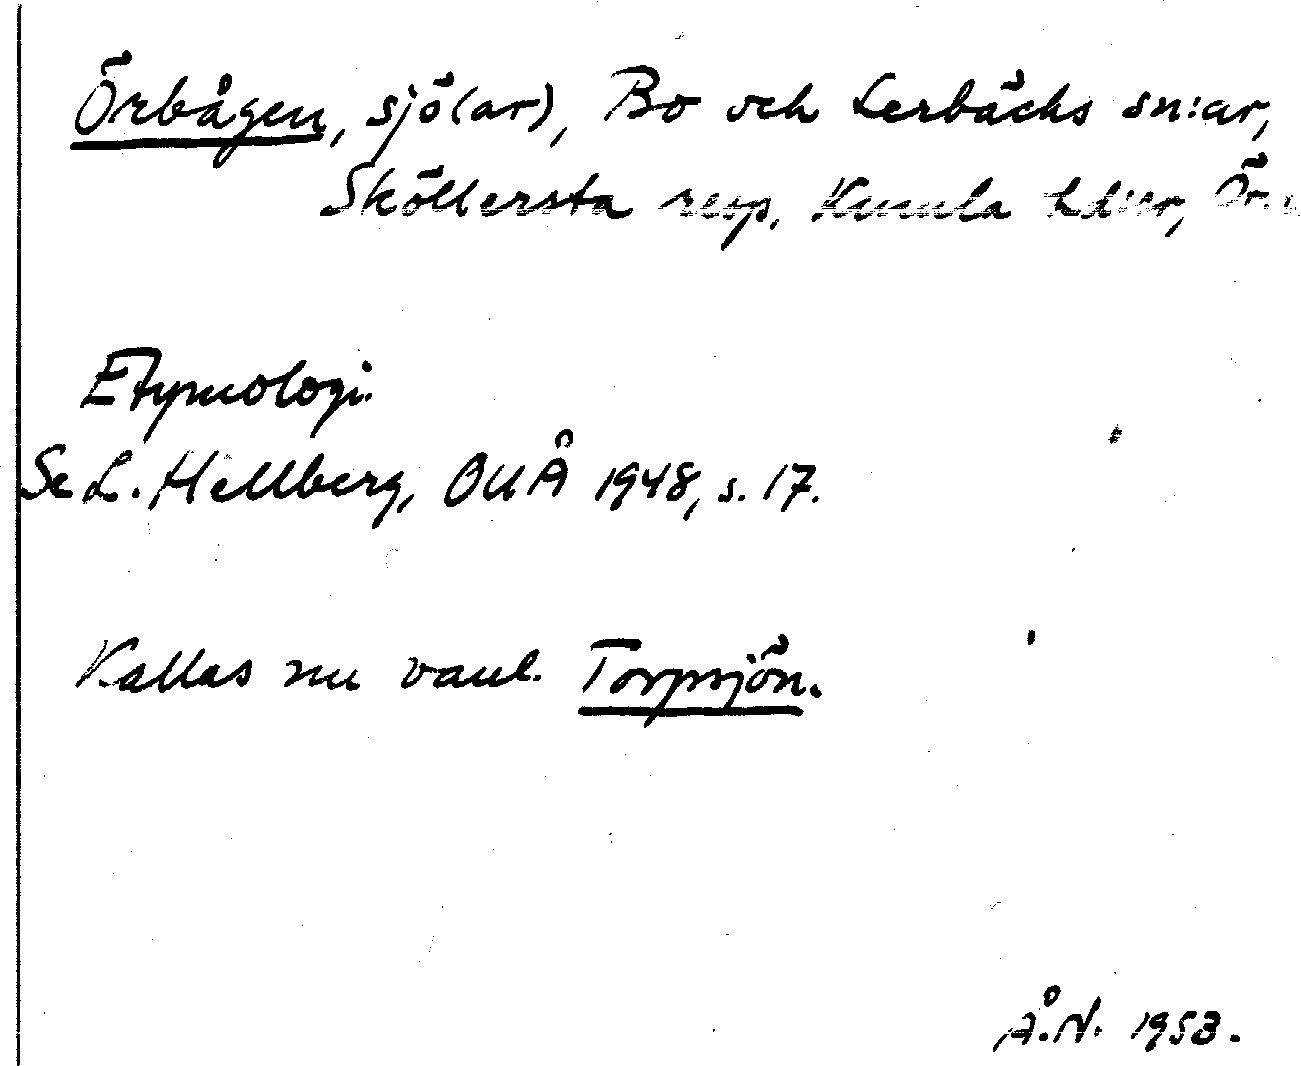 Örbågen, sjö(ar), Bo och Lerbäcks sn:ar,
Sköllersta resp. Kumla hd:er, Ör.
Etymologi.
Se L. Hellberg, OUÅ 1948, s. 17.
Kallas nu vanl. Torpsjön.
Å.N. 1953.